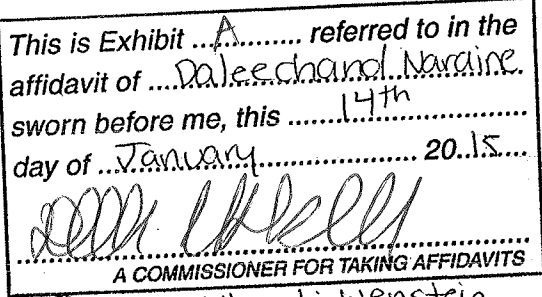 This is Exhibit ...A............ referred to in the
affidavit of ....Daleechand Naraine
sworn before me, this .......14th..................
day of ...January..................... 20.15....
A COMMISSIONER FOR TAKING AFFIDAVITS